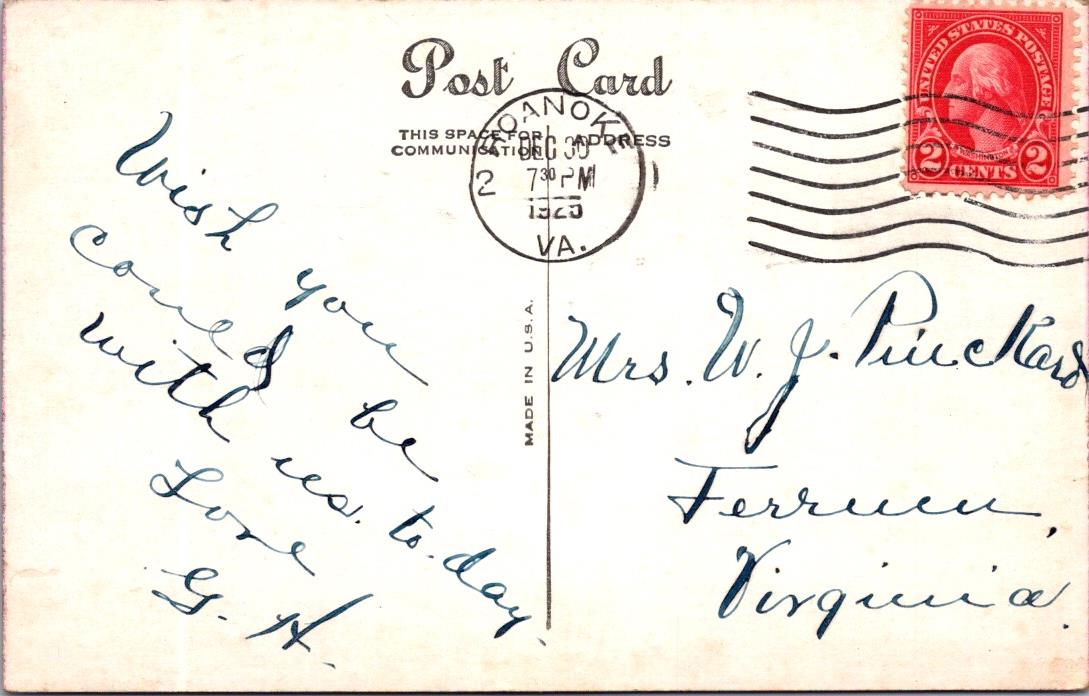 Post Card
THIS SPACE FOR
COMMUNICATION
ADDRESS
ROANOKE
DEC 30
7 30 PM
1925
VA.
2
1
UNITED STATES POSTAGE
WASHINGTON
2 CENTS 2
MADE IN U.S.A.
Wish you
could be
with us. to-day.
Love
G. H.
Mrs. W. J. Pinckard
Ferrum,
Virginia.